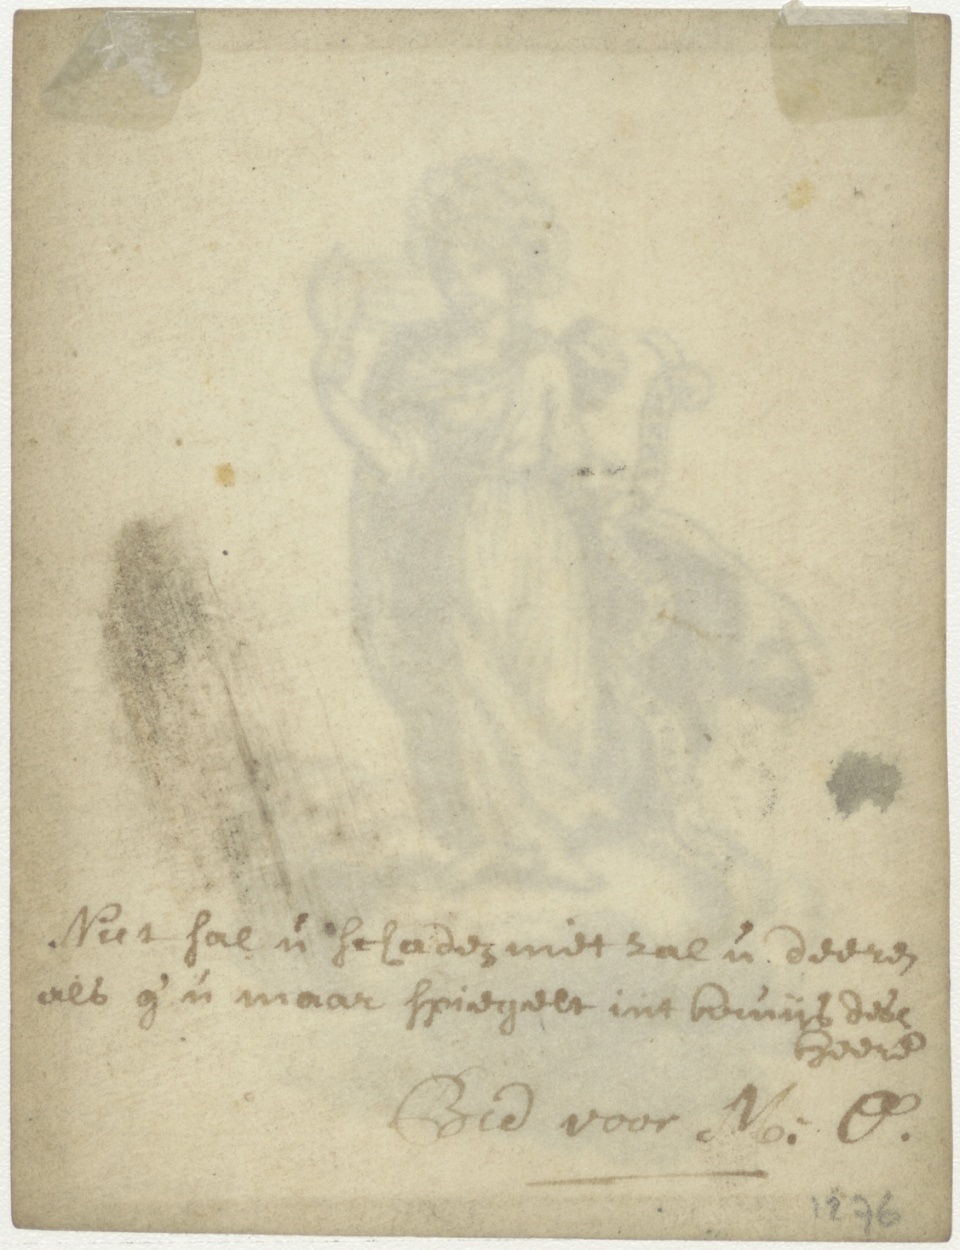 Niet sal u schaden niet zal u deeren
als g'u maar spiegelt int kruijs des
heere
Bid voor M: O.
1276